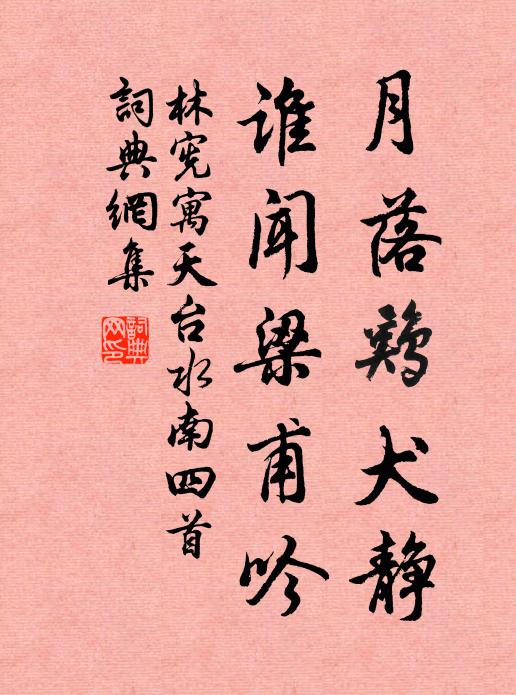 月落鷄犬静
谁闻梁甫吟
林宪寓天台水南四首
詞典網集
詞典
网印